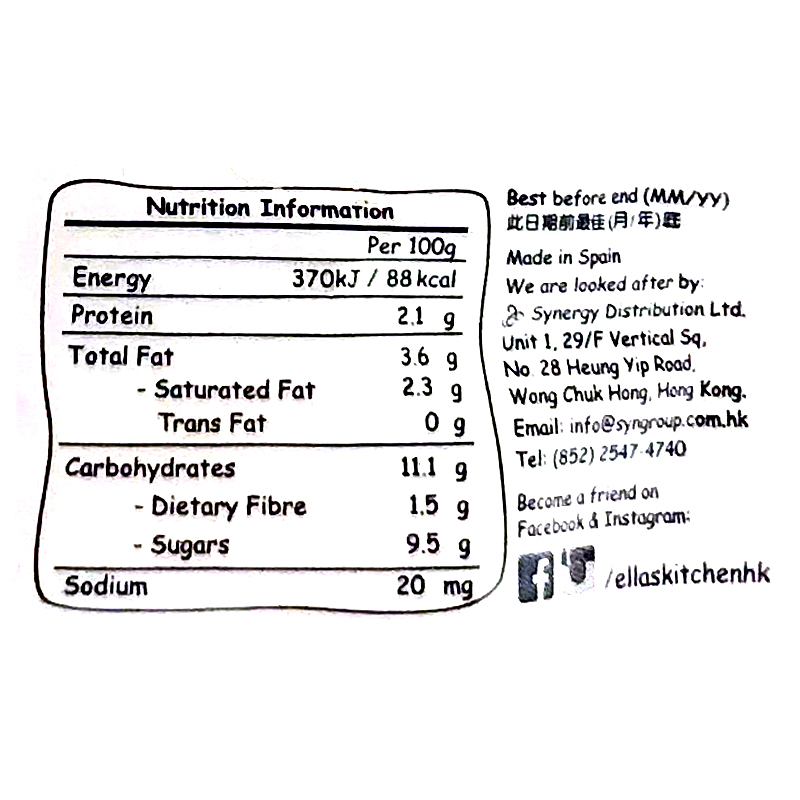 Nutrition Information
Per 100g
Energy 370kJ / 88 kcal
Protein 2.1 g
Total Fat 3.6 g
- Saturated Fat 2.3 g
Trans Fat 0 g
Carbohydrates 11.1 g
- Dietary Fibre 1.5 g
- Sugars 9.5 g
Sodium 20 mg
Best before end (MM/YY)
此日期前最佳(月/年)
Made in Spain
We are looked after by:
Synergy Distribution Ltd.
Unit 1, 29/F Vertical Sq,
No. 28 Heung Yip Road,
Wong Chuk Hong, Hong Kong.
Email: info@syngroup.com.hk
Tel: (852) 2547-4740
Become a friend on
Facebook & Instagram:
/ellaskitchenhk